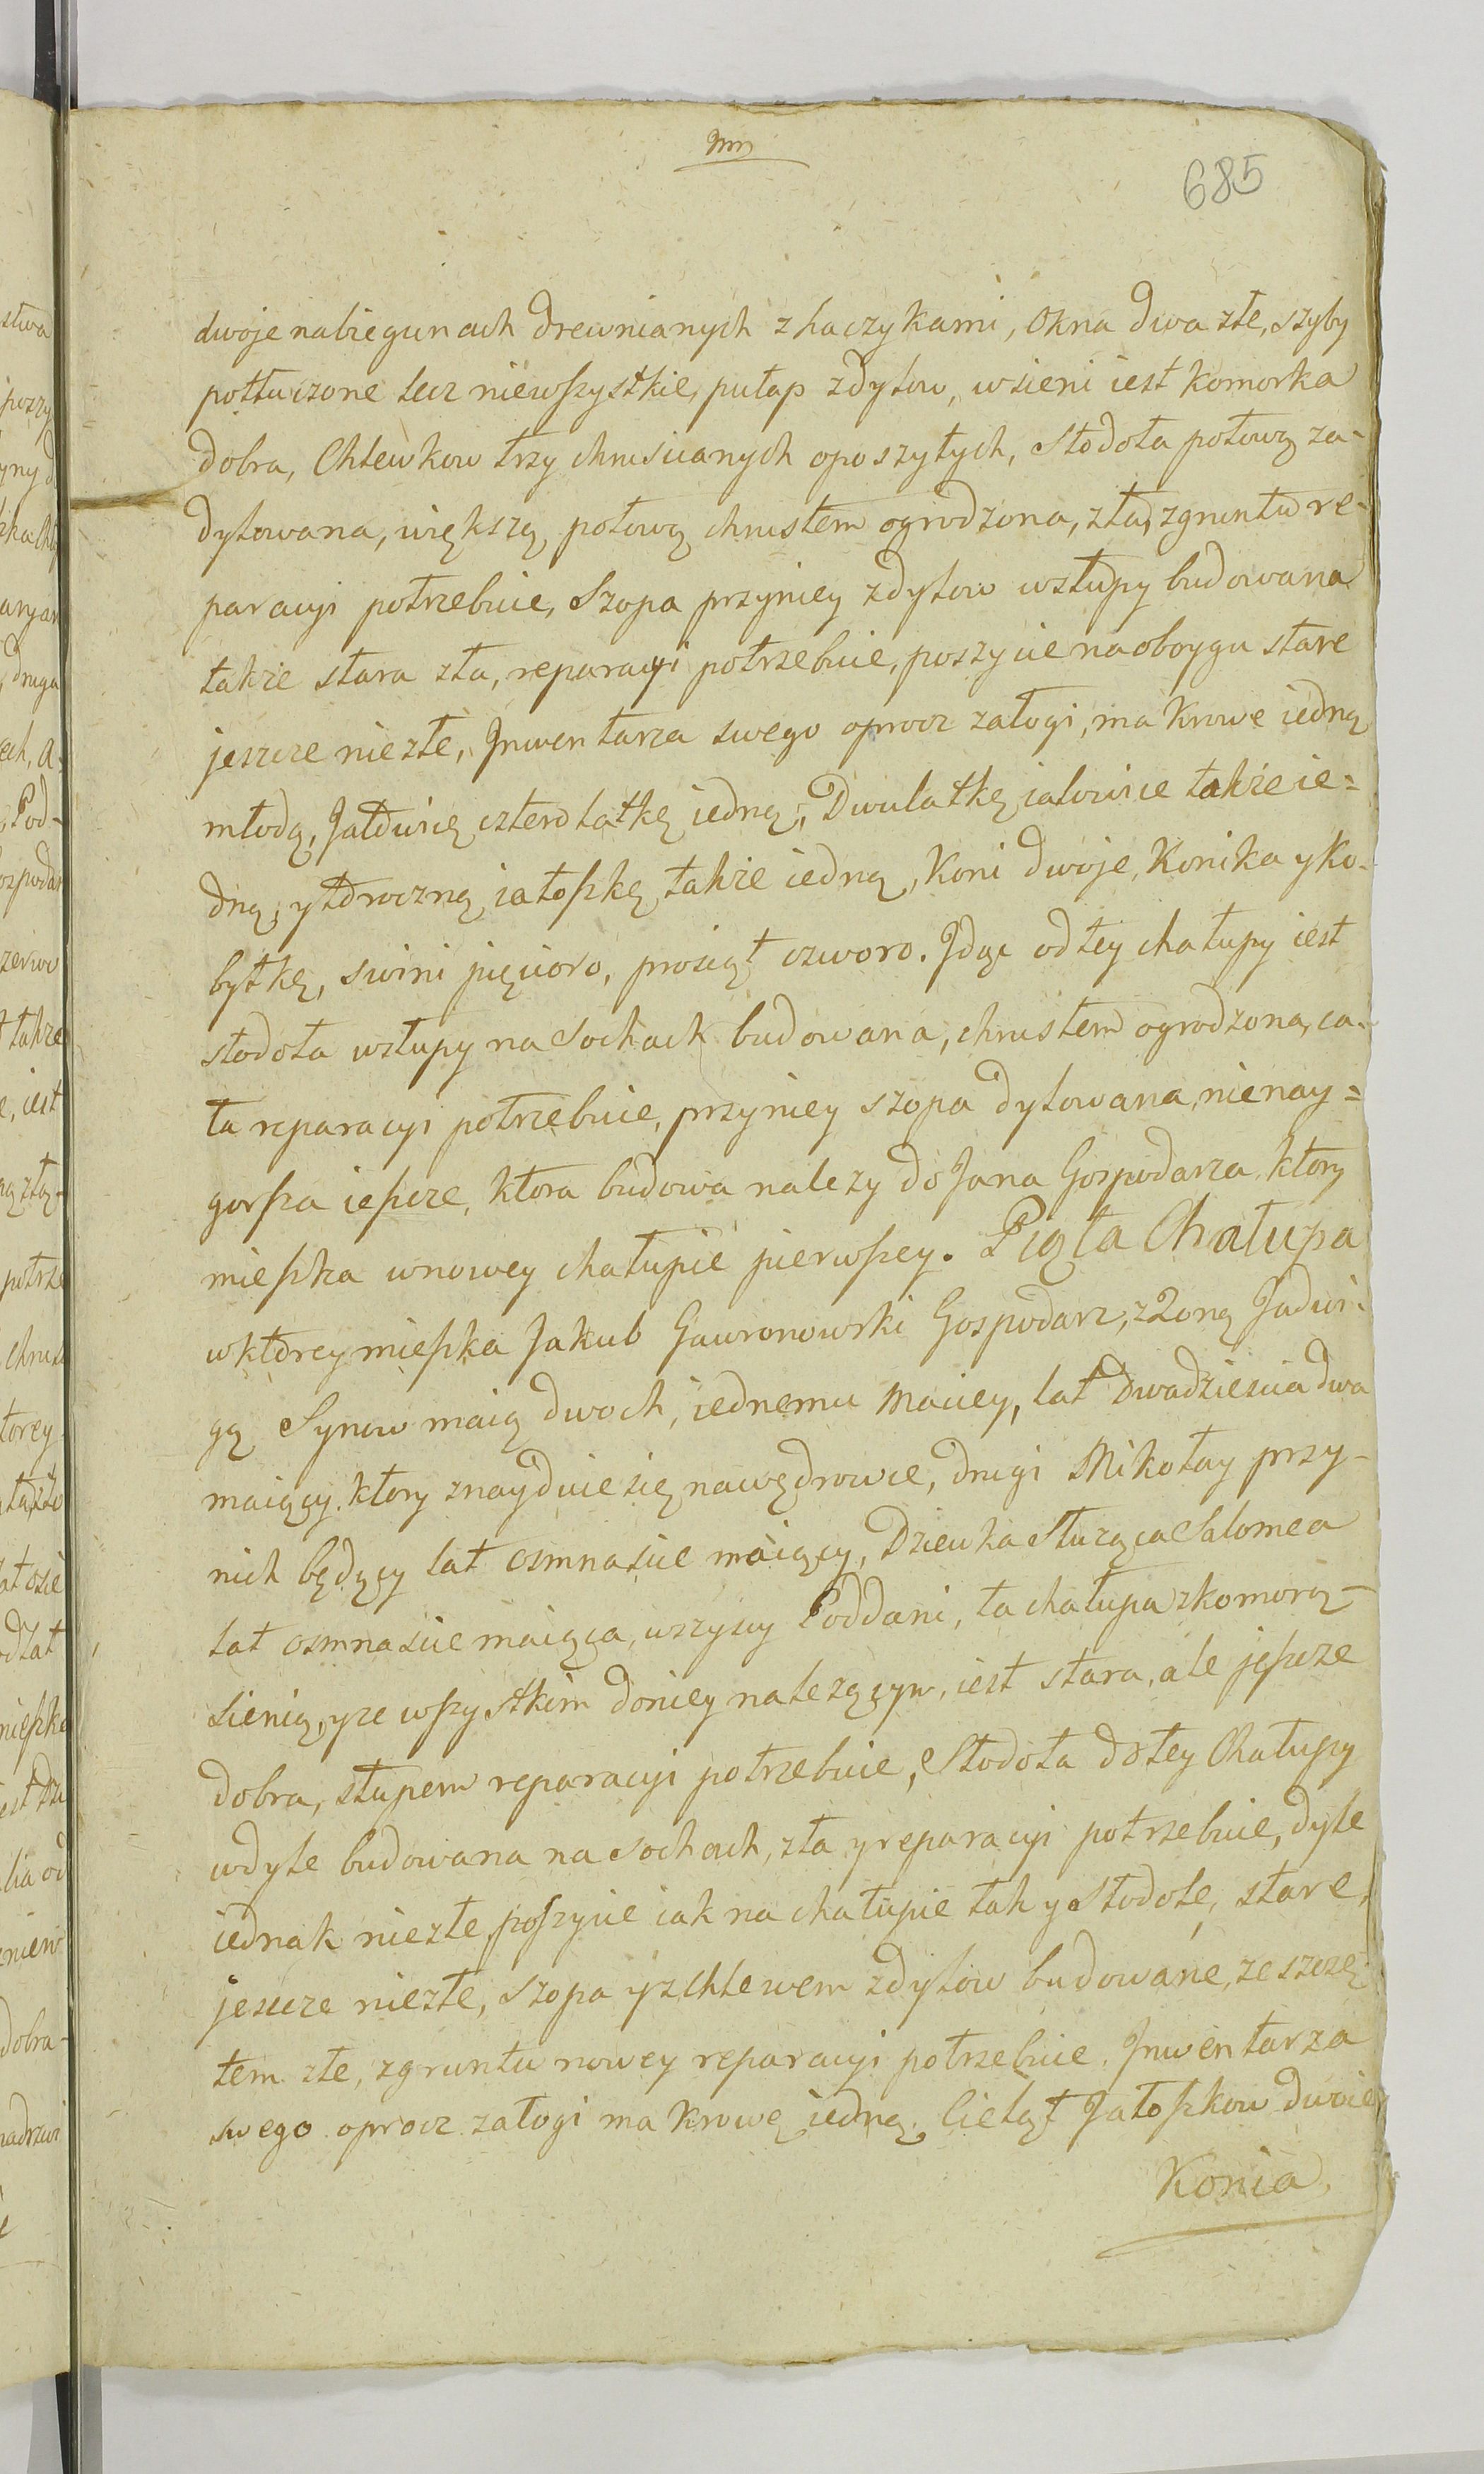 685
dwoje nabiegunach drewnianych z haczykami, Okna dwa złe, szyby
potłuczone lecz niewszystkie, pułap zdylow, wsieni iest komorka
dobra, Chlewkow trzy chruscianych oposzytych, Stodoła połową za-
dylowana, większą połową chrustem ogrodzona, zła, zgruntu re-
paracyi potrzebuie, Szopa przyniey zdylow wsłupy budowana
także stara zła, reparacyi potrzebuie, poszycie naoboygu stare
jeszcze niezłe, Inwentarza swego oprocz załogi, ma krowe iedną
młodą, Jałowicę czterolatkę iedną, Dwulatkę iałowice także ie=
dną, ytoroczną iałoszkę także iedną, Koni dwoje, Konika y Ko-
byłkę, swini pięcioro, prosiąt czworo. Idąc odtey chałupy iest
stodoła wsłupy na sochach budowana, chrustem ogrodzona, ca-
ła reparacyi potrzebuie, przyniey szopa dylowana, nienay=
gorsza ieszcze, ktora budowa nalezy do Jana Gospodarza, ktory
mieszka wnowey chałupie pierwszey. Piąta Chałupa
wktorey mieszka Jakub Gawronowski Gospodarz, z Zoną Jadwi-
gą Synow maią dwoch, iednemu Maciey, lat Dwadziescia dwa
maiący, ktory znayduie się nawędrowce, drugi Mikołay przy-
nich będący lat osmnascie maiący, Dziewka Służąca Salomea
lat osmnascie maiąca, wszyscy Poddani, ta chałupa zkomorą-
sienią, yze wszystkim doniey nalezącym, iest stara, ale jeszcze
dobra, słupem reparacyi potrzebuie, Stodoła dotey Chałupy
wdyle budowana na sochach, zła yreparacyi potrzebuie, dyle
iednak niezłe, poszycie iak na chałupie tak y Stodole, stare,
jeszcze niezłe, Szopa yzchlewem zdylow budowane, ze szczę-
tem złe, zgruntu nowey reparacyi potrzebuie. Inwentarza
swego oprocz załogi ma Krowę iedną. Cieląt Jałoszkow dwoie
Konia